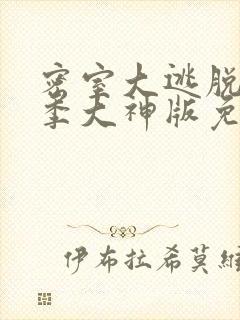 密室大逃脱
季大神版免
伊布拉希莫维